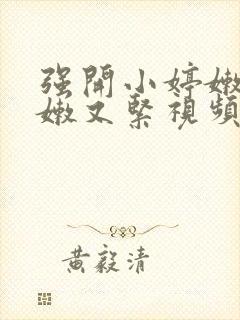 强開小婷嫩
嫩又緊視頻
黄毅清